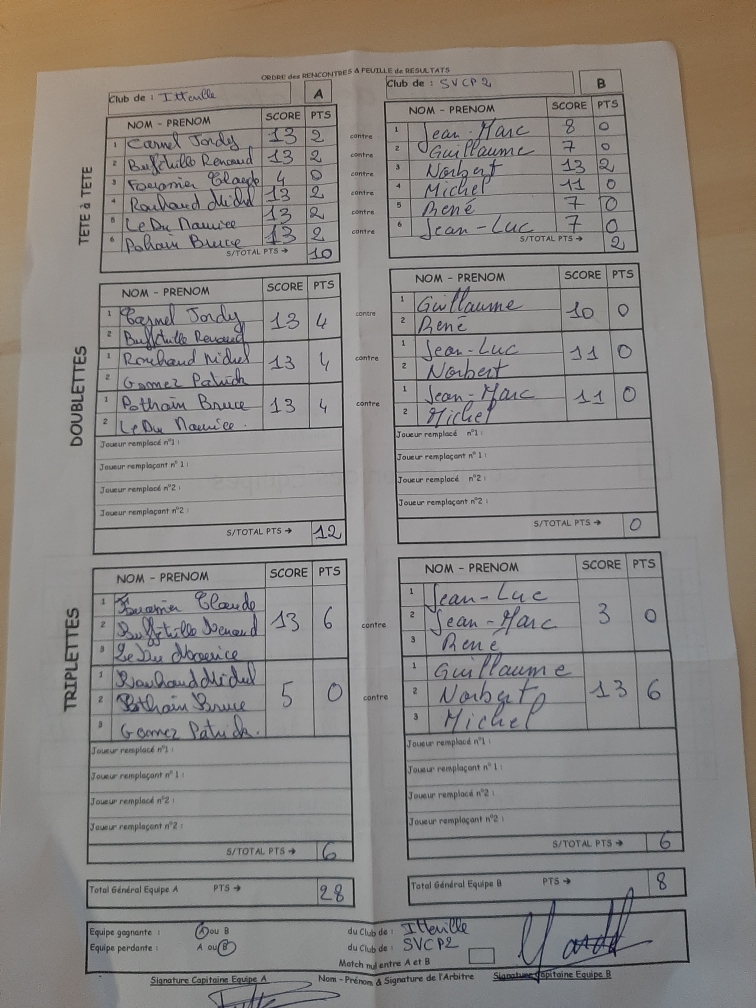 ORDRE des RENCONTRES & FEUILLE de RESULTATS
Club de : Itteville A
Club de : SVCP2 B
TETE à TETE
NOM - PRENOM SCORE PTS
1 Carmel Jordy 13 2 contre
2 Buffetille Renaud 13 2 contre
3 Fournier Claude 4 0 contre
4 Rouhaud Michel 13 2 contre
5 Le Du Maurice 13 2 contre
6 Pothain Bruce 13 2 contre
S/TOTAL PTS → 10
NOM - PRENOM SCORE PTS
1 Jean-Marc 8 0
2 Guillaume 7 0
3 Norbert 13 2
4 Michel 11 0
5 René 7 0
6 Jean-Luc 7 0
S/TOTAL PTS → 2
DOUBLETTES
NOM - PRENOM SCORE PTS
1 Carmel Jordy 13 4 contre
2 Buffetille Renaud
1 Rouhaud Michel 13 4 contre
2 Gomez Patrick
1 Pothain Bruce 13 4 contre
2 Le Du Maurice.
Joueur remplacé n°1 :
Joueur remplaçant n° 1 :
Joueur remplacé n°2 :
Joueur remplaçant n°2 :
S/TOTAL PTS → 12
NOM - PRENOM SCORE PTS
1 Guillaume 10 0
2 René
1 Jean-Luc 11 0
2 Norbert
1 Jean-Marc 11 0
2 Michel
Joueur remplacé n°1 :
Joueur remplaçant n° 1 :
Joueur remplacé n°2 :
Joueur remplaçant n°2 :
S/TOTAL PTS → 0
TRIPLETTES
NOM - PRENOM SCORE PTS
1 Fournier Claude
2 Buffetille Renaud 13 6 contre
3 Le Du Maurice
1 Rouhaud Michel
2 Pothain Bruce 5 0 contre
3 Gomez Patrick.
Joueur remplacé n°1 :
Joueur remplaçant n° 1 :
Joueur remplacé n°2 :
Joueur remplaçant n°2 :
S/TOTAL PTS → 6
NOM - PRENOM SCORE PTS
1 Jean-Luc
2 Jean-Marc 3 0
3 René
1 Guillaume
2 Norbert 13 6
3 Michel
Joueur remplacé n°1 :
Joueur remplaçant n° 1 :
Joueur remplacé n°2 :
Joueur remplaçant n°2 :
S/TOTAL PTS → 6
Total Général Equipe A PTS → 28
Total Général Equipe B PTS → 8
Equipe gagnante : A ou B du Club de : Itteville
Equipe perdante : A ou B du Club de : SVCP2
Match nul entre A et B
Signature Capitaine Equipe A Nom - Prénom & Signature de l'Arbitre Signature Capitaine Equipe B